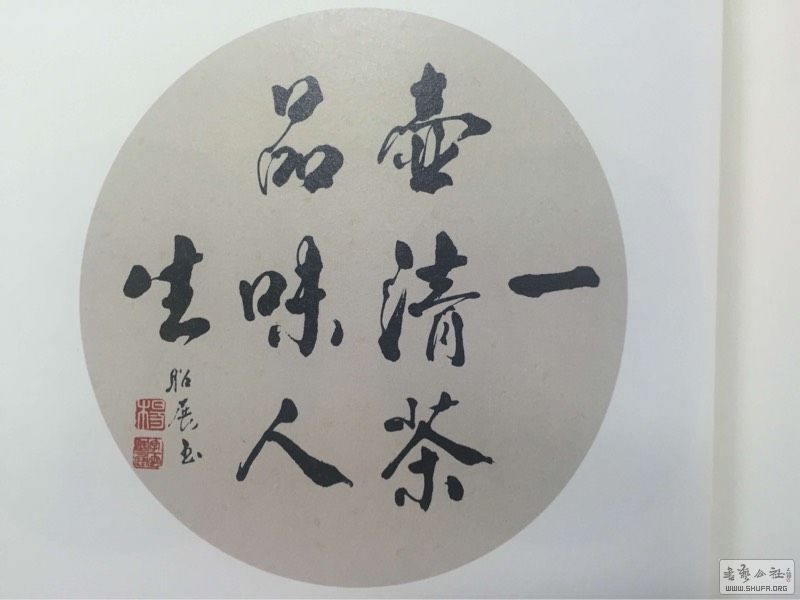 一
壶清茶
品味人
生
书艺公社
WWW.SHUFA.ORG